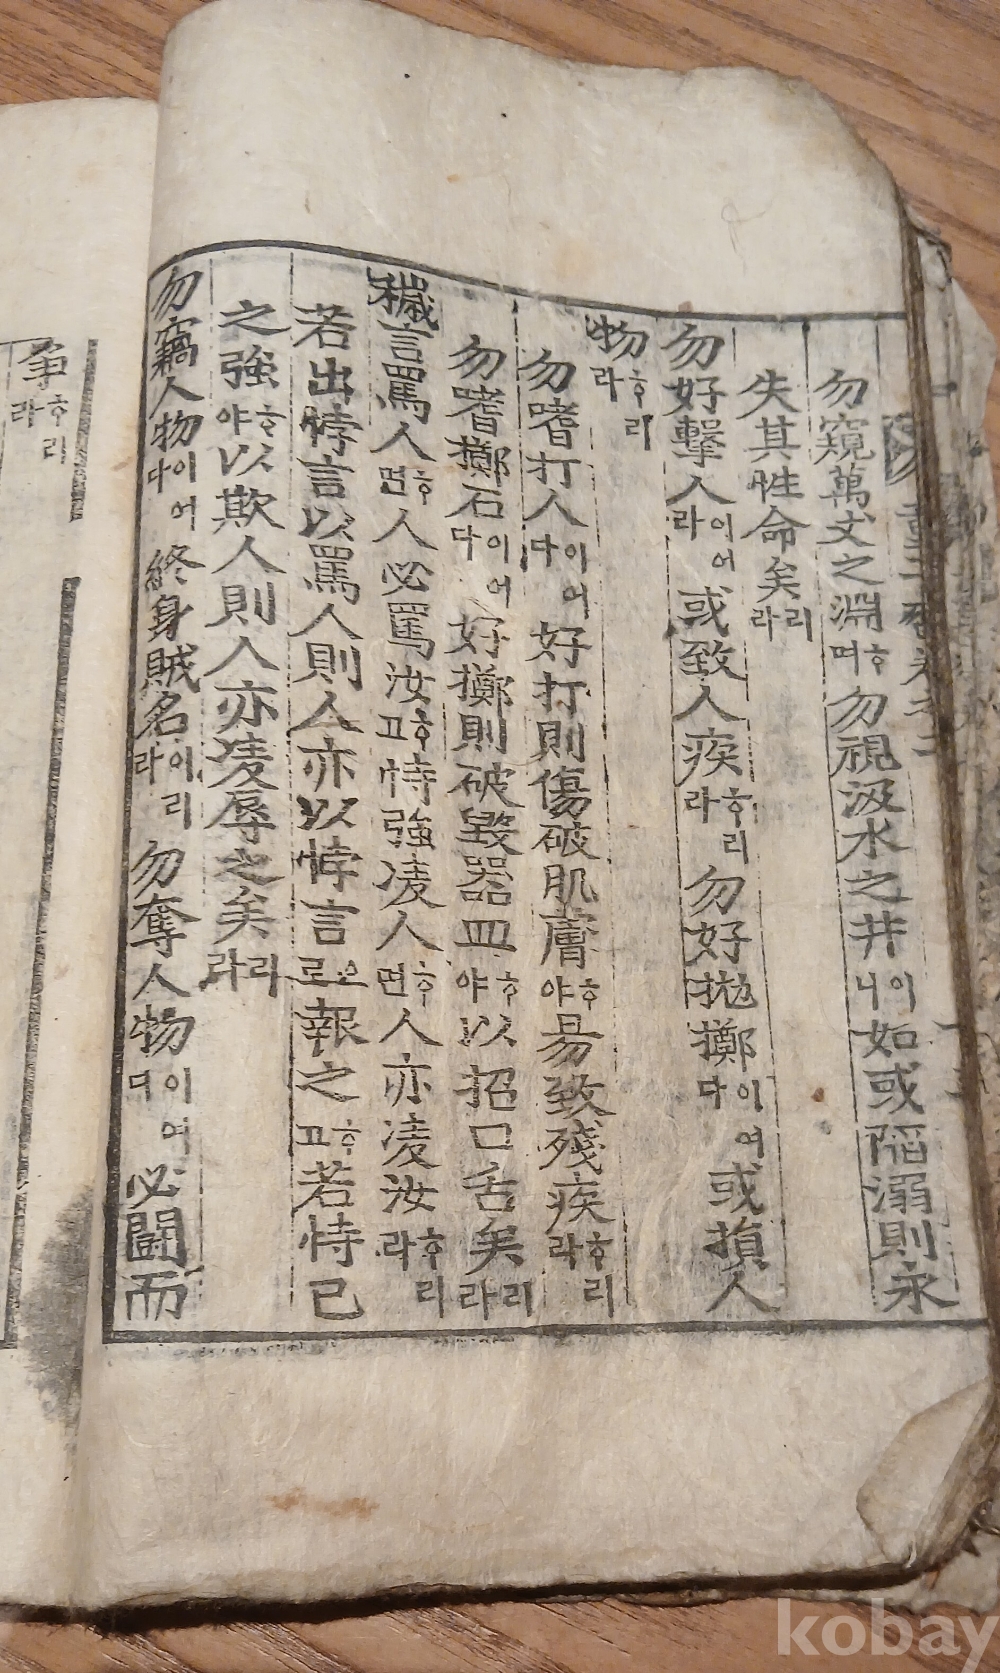 勿窺萬丈之淵ᄒᆞ며勿視汲水之井이니如或陷溺則永
失其性命矣리라
勿好擊人이어라或致人疾ᄒᆞ리라勿好抛擲이여다或損人
物ᄒᆞ리라
勿嗜打人이어다好打則傷破肌膚ᄒᆞ야易致殘疾ᄒᆞ리라
勿嗜擲石이어다好擲則破毀器皿ᄒᆞ야以招口舌矣리라
穢言罵人ᄒᆞ면人必罵汝ᄒᆞ고恃強凌人ᄒᆞ면人亦凌汝ᄒᆞ리라
若出悖言以罵人則人亦以悖言으로報之ᄒᆞ고若恃己
之強ᄒᆞ야以欺人則人亦凌辱之矣리라
勿竊人物이어다終身賊名이리라勿奪人物이여다必鬪而
爭ᄒᆞ리라
kobay